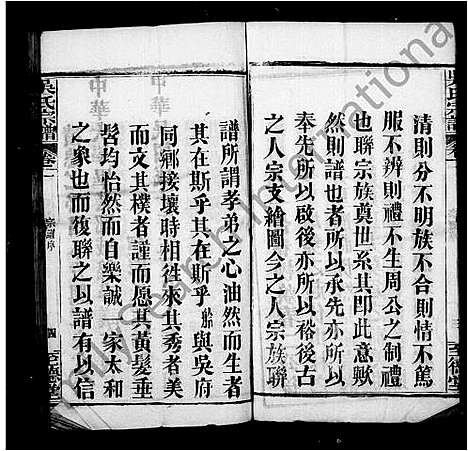 清則分不明族不合則情不篤
服不辨則禮不生周公之制禮
也聯宗族奠世系其即此意歟
然則譜也者所以承先亦所以
奉先所以啟後亦所以裕後古
之人宗支繪圖今之人宗族聯
譜所謂孝弟之心油然而生者
其在斯乎其在斯乎 與吳府
同鄉接壤時相徃來其秀者美
而文其樸者謹而愿其黃髮垂
髫均怡然而自樂誠一家太和
之象也而復聯之以譜有以信
吳氏宗譜
卷一
宗譜序
四
至德堂